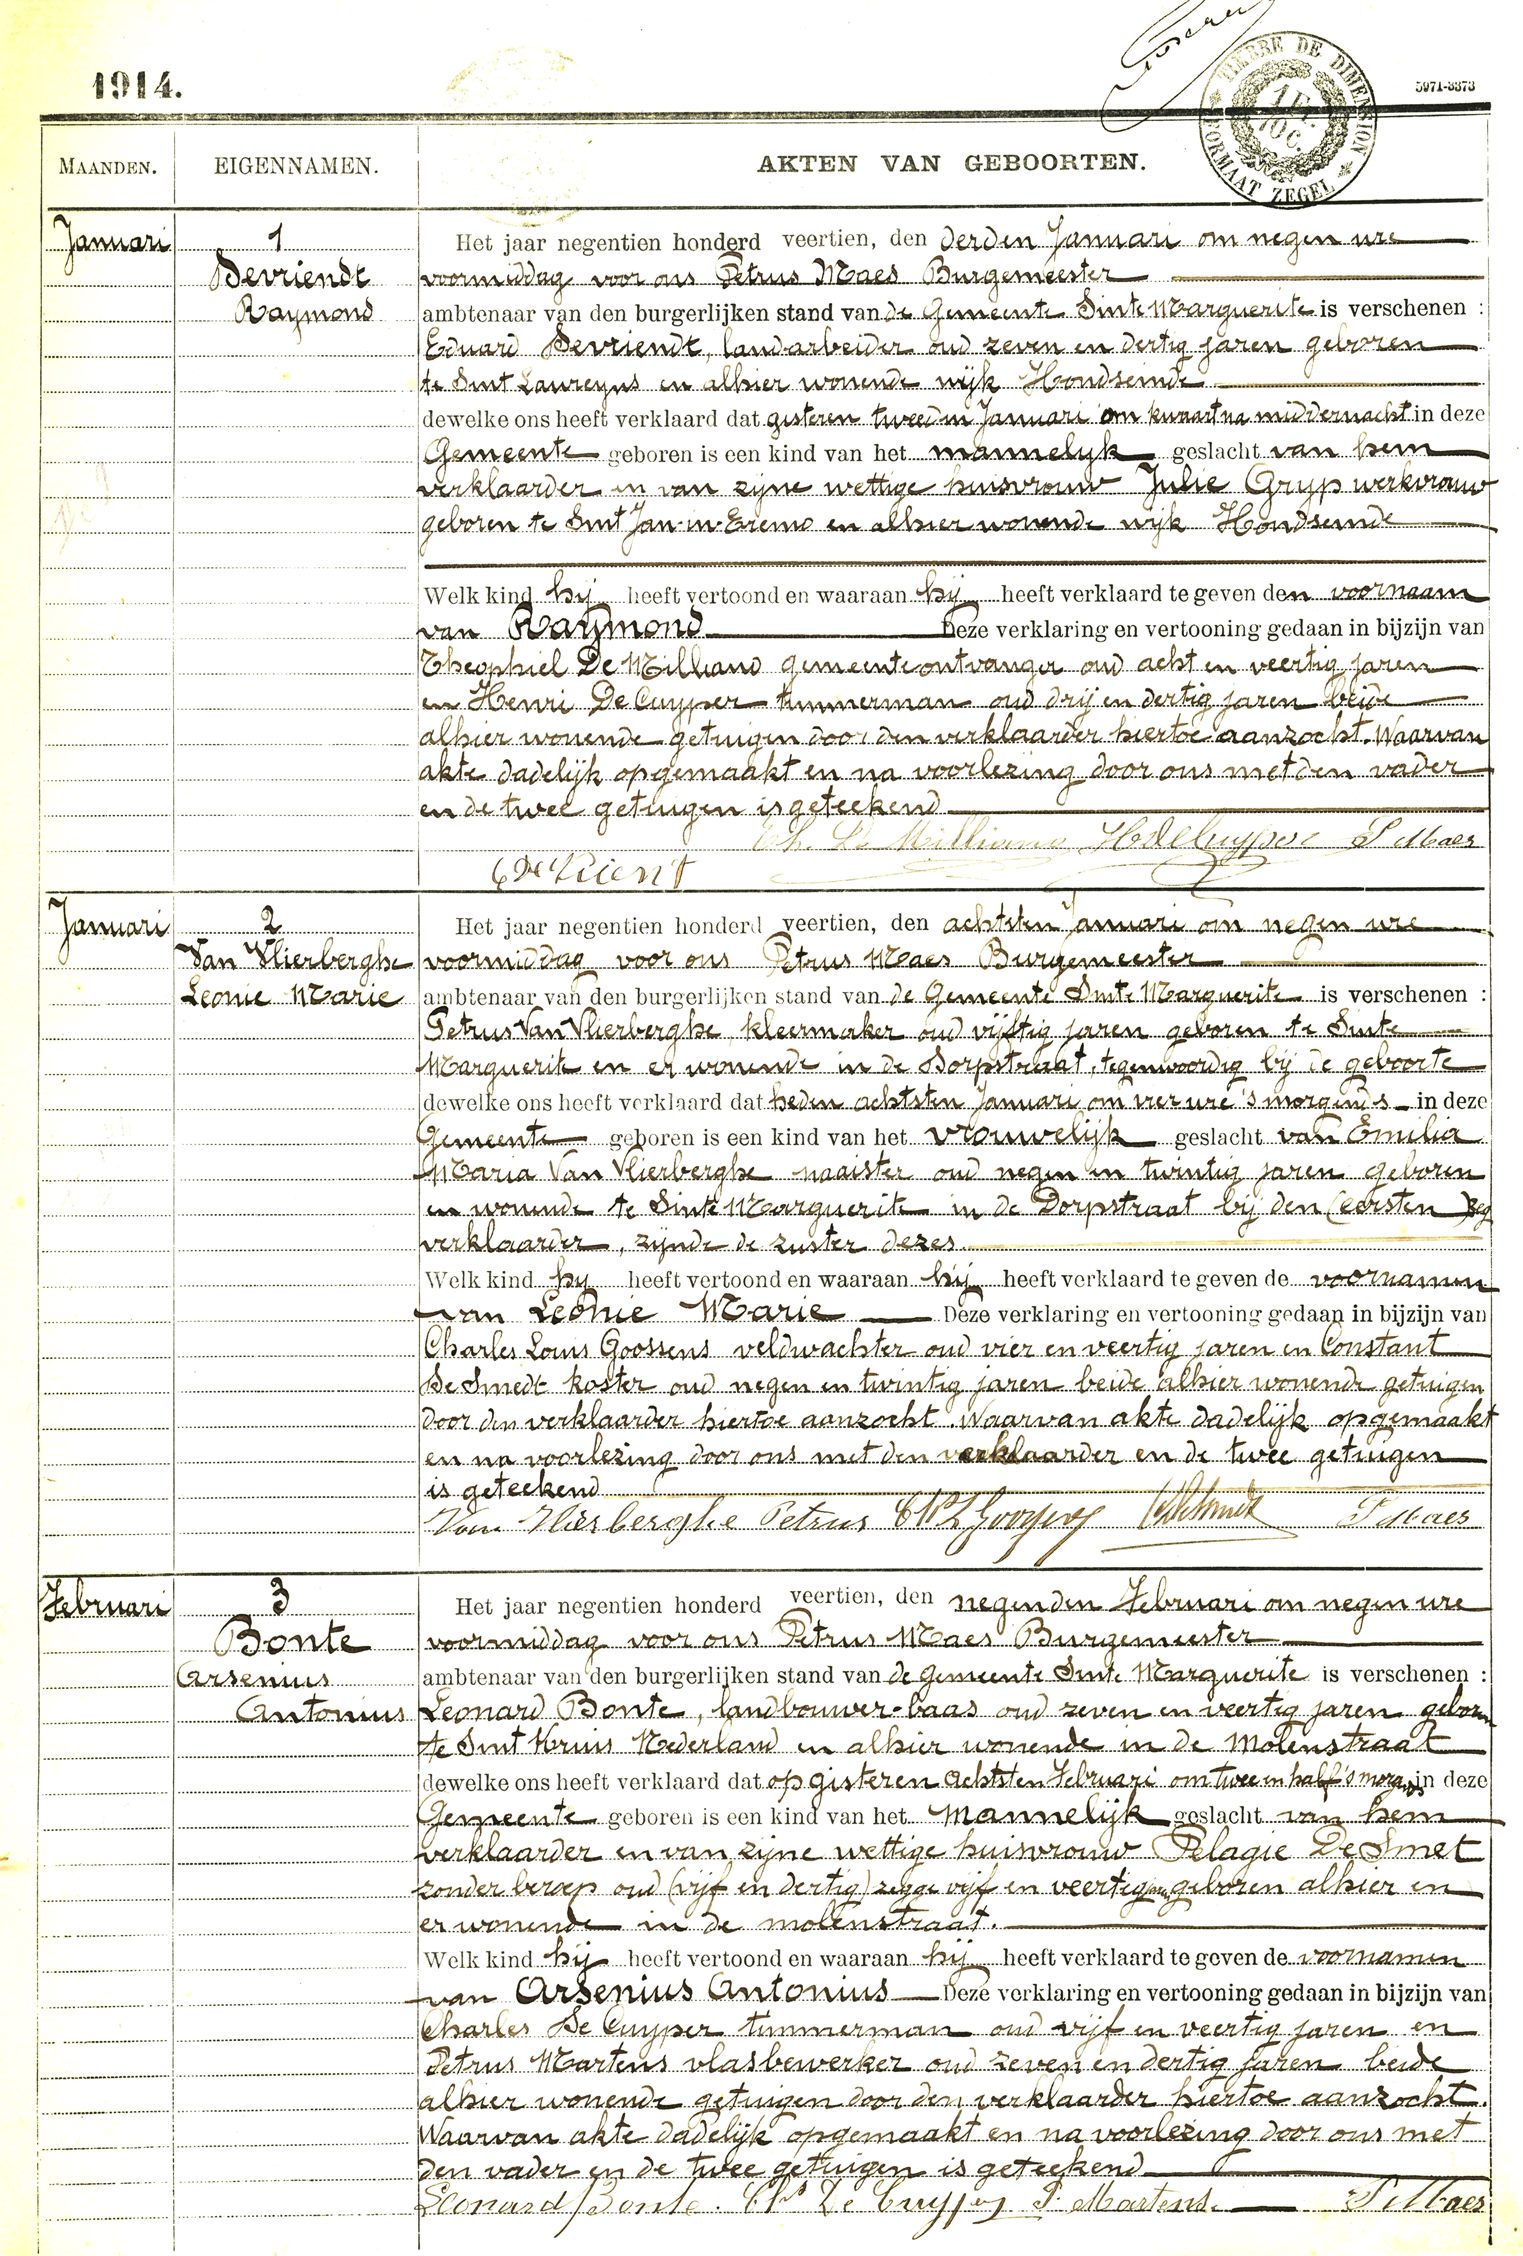 1914.
TIMBRE DE DIMENSION
FORMAAT ZEGEL
1 FR.
10 C.
5971-3373
MAANDEN.
EIGENNAMEN.
AKTEN VAN GEBOORTEN.
Januari
1
Devriendt
Raymond
Het jaar negentien honderd veertien, den derden Januari om negen ure
voormiddag voor ons Petrus Maes Burgemeester
ambtenaar van den burgerlijken stand van de Gemeente Sinte Marguerite is verschenen :
Eduard Devriendt, landarbeider oud zeven en dertig jaren geboren
te Sint Laureyns en alhier wonende wijk Hondseinde
dewelke ons heeft verklaard dat gisteren tweeden Januari om kwaart na middernacht in deze
Gemeente geboren is een kind van het mannelyk geslacht van hem
verklaarder en van zyne wettige huisvrouw Julie Gryp werkvrouw
geboren te Sint Jan-in-Eremo en alhier wonende wijk Hondseinde
Welk kind hij heeft vertoond en waaraan hij heeft verklaard te geven den voornaam
van Raymond Deze verklaring en vertooning gedaan in bijzijn van
Theophiel De Milliano gemeenteontvanger oud acht en veertig jaren
en Henri De Cuyper timmerman oud drij en dertig jaren beide
alhier wonende getuigen door den verklaarder hiertoe aanzocht. Waarvan
akte dadelijk opgemaakt en na voorlezing door ons met den vader
en de twee getuigen is geteekend
Th. De Milliano H De Cuyper P Maes
E De Vrient
Januari
2
Van Vlierberghe
Leonie Marie
Het jaar negentien honderd veertien, den achtsten Januari om negen ure
voormiddag voor ons Petrus Maes Burgemeester
ambtenaar van den burgerlijken stand van de Gemeente Sinte Marguerite is verschenen :
Petrus Van Vlierberghe, kleermaker oud vijftig jaren geboren te Sinte
Marguerite en er wonende in de Dorpstraat, tegenwoordig bij de geboorte
dewelke ons heeft verklaard dat heden achtsten Januari om vier ure 's morgends in deze
Gemeente geboren is een kind van het vrouwelijk geslacht van Emilia
Maria Van Vlierberghe naaister oud negen en twintig jaren geboren
en wonende te Sinte Marguerite in de Dorpstraat bij den (eersten)
verklaarder, zijnde de zuster dezes.
Welk kind hy heeft vertoond en waaraan hij heeft verklaard te geven de voornamen
van Leonie Marie Deze verklaring en vertooning gedaan in bijzijn van
Charles Louis Goossens veldwachter oud vier en veertig jaren en Constant
De Smedt koster oud negen en twintig jaren beide alhier wonende getuigen
door den verklaarder hiertoe aanzocht. Waarvan akte dadelijk opgemaakt
en na voorlezing door ons met den verklaarder en de twee getuigen
is geteekend
Van Vlierberghe Petrus Ch L Goossens C De Smedt P Maes
Februari
3
Bonte
Arsenius
Antonius
Het jaar negentien honderd veertien, den negenden Februari om negen ure
voormiddag voor ons Petrus Maes Burgemeester
ambtenaar van den burgerlijken stand van de Gemeente Sinte Marguerite is verschenen :
Leonard Bonte, landbouwer-baas oud zeven en veertig jaren geboren
te Sint Kruis Nederland en alhier wonende in de Molenstraat
dewelke ons heeft verklaard dat op gisteren achtsten Februari om twee en half 's morgends in deze
Gemeente geboren is een kind van het Mannelijk geslacht van hem
verklaarder en van zijne wettige huisvrouw Pelagie De Smet
zonder beroep oud (vijf en dertig) zegge vijf en veertig jaren geboren alhier en
er wonende in de molenstraat.
Welk kind hij heeft vertoond en waaraan hij heeft verklaard te geven de voornamen
van Arsenius Antonius Deze verklaring en vertooning gedaan in bijzijn van
Charles De Cuyper timmerman oud vijf en veertig jaren en
Petrus Martens vlasbewerker oud zeven en dertig jaren beide
alhier wonende getuigen door den verklaarder hiertoe aanzocht.
Waarvan akte dadelijk opgemaakt en na voorlezing door ons met
den vader en de twee getuigen is geteekend
Leonard Bonte. Ch De Cuyper P. Martens. P Maes